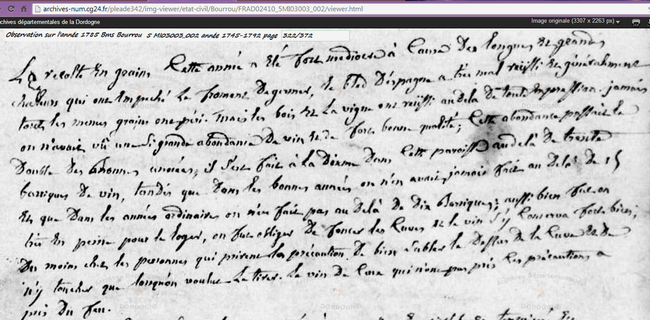 archives-num.cg24.fr/pleade342/img-viewer/etat-civil/Bourrou/FRAD02410_5MI03003_002/viewer.html
chives départementales de la Dordogne
Image originale (3307 x 2263 px)
Observation sur l'année 1785 Bms Bourrou 5 MI03003_002 année 1745-1792 page 322/372
La recolte En grains Cette année a été fort mediocre à Cause Des longues et grandes
chaleurs qui ont Empeché Le froment De germer, le bled D'Espagne a tres mal reussi et généralement
tous les menus grains ont peri. mais les bois et La vigne ont reussi audela de toute Expression. jamais
on n'avait vû une Si grande abondance De vin et de fort bonne qualité; Cette abondance passait le
Double des bonnes années, il s'est fait à la Dixme Dans Cette paroisse audelà de trente
barriques de vin, tandis que Dans les bonnes années on n'en avait jamais fait au Delà De 15
Et que Dans les années ordinaires on n'en fait pas au Delà De Dix Barriques; aussi bien fut on
très En peine pour le loger, on fut obliger De foncer les Cuves et le vin s'y Conserva fort bien;
Du moins chez les personnes qui prirent la precaution De bien Sabler le Dessus de la Cuve et De
n'y toucher que lorsqu'on voulut La tirer. Le vin De Ceux qui n'ont pas pris les précautions a
pris Du feu.